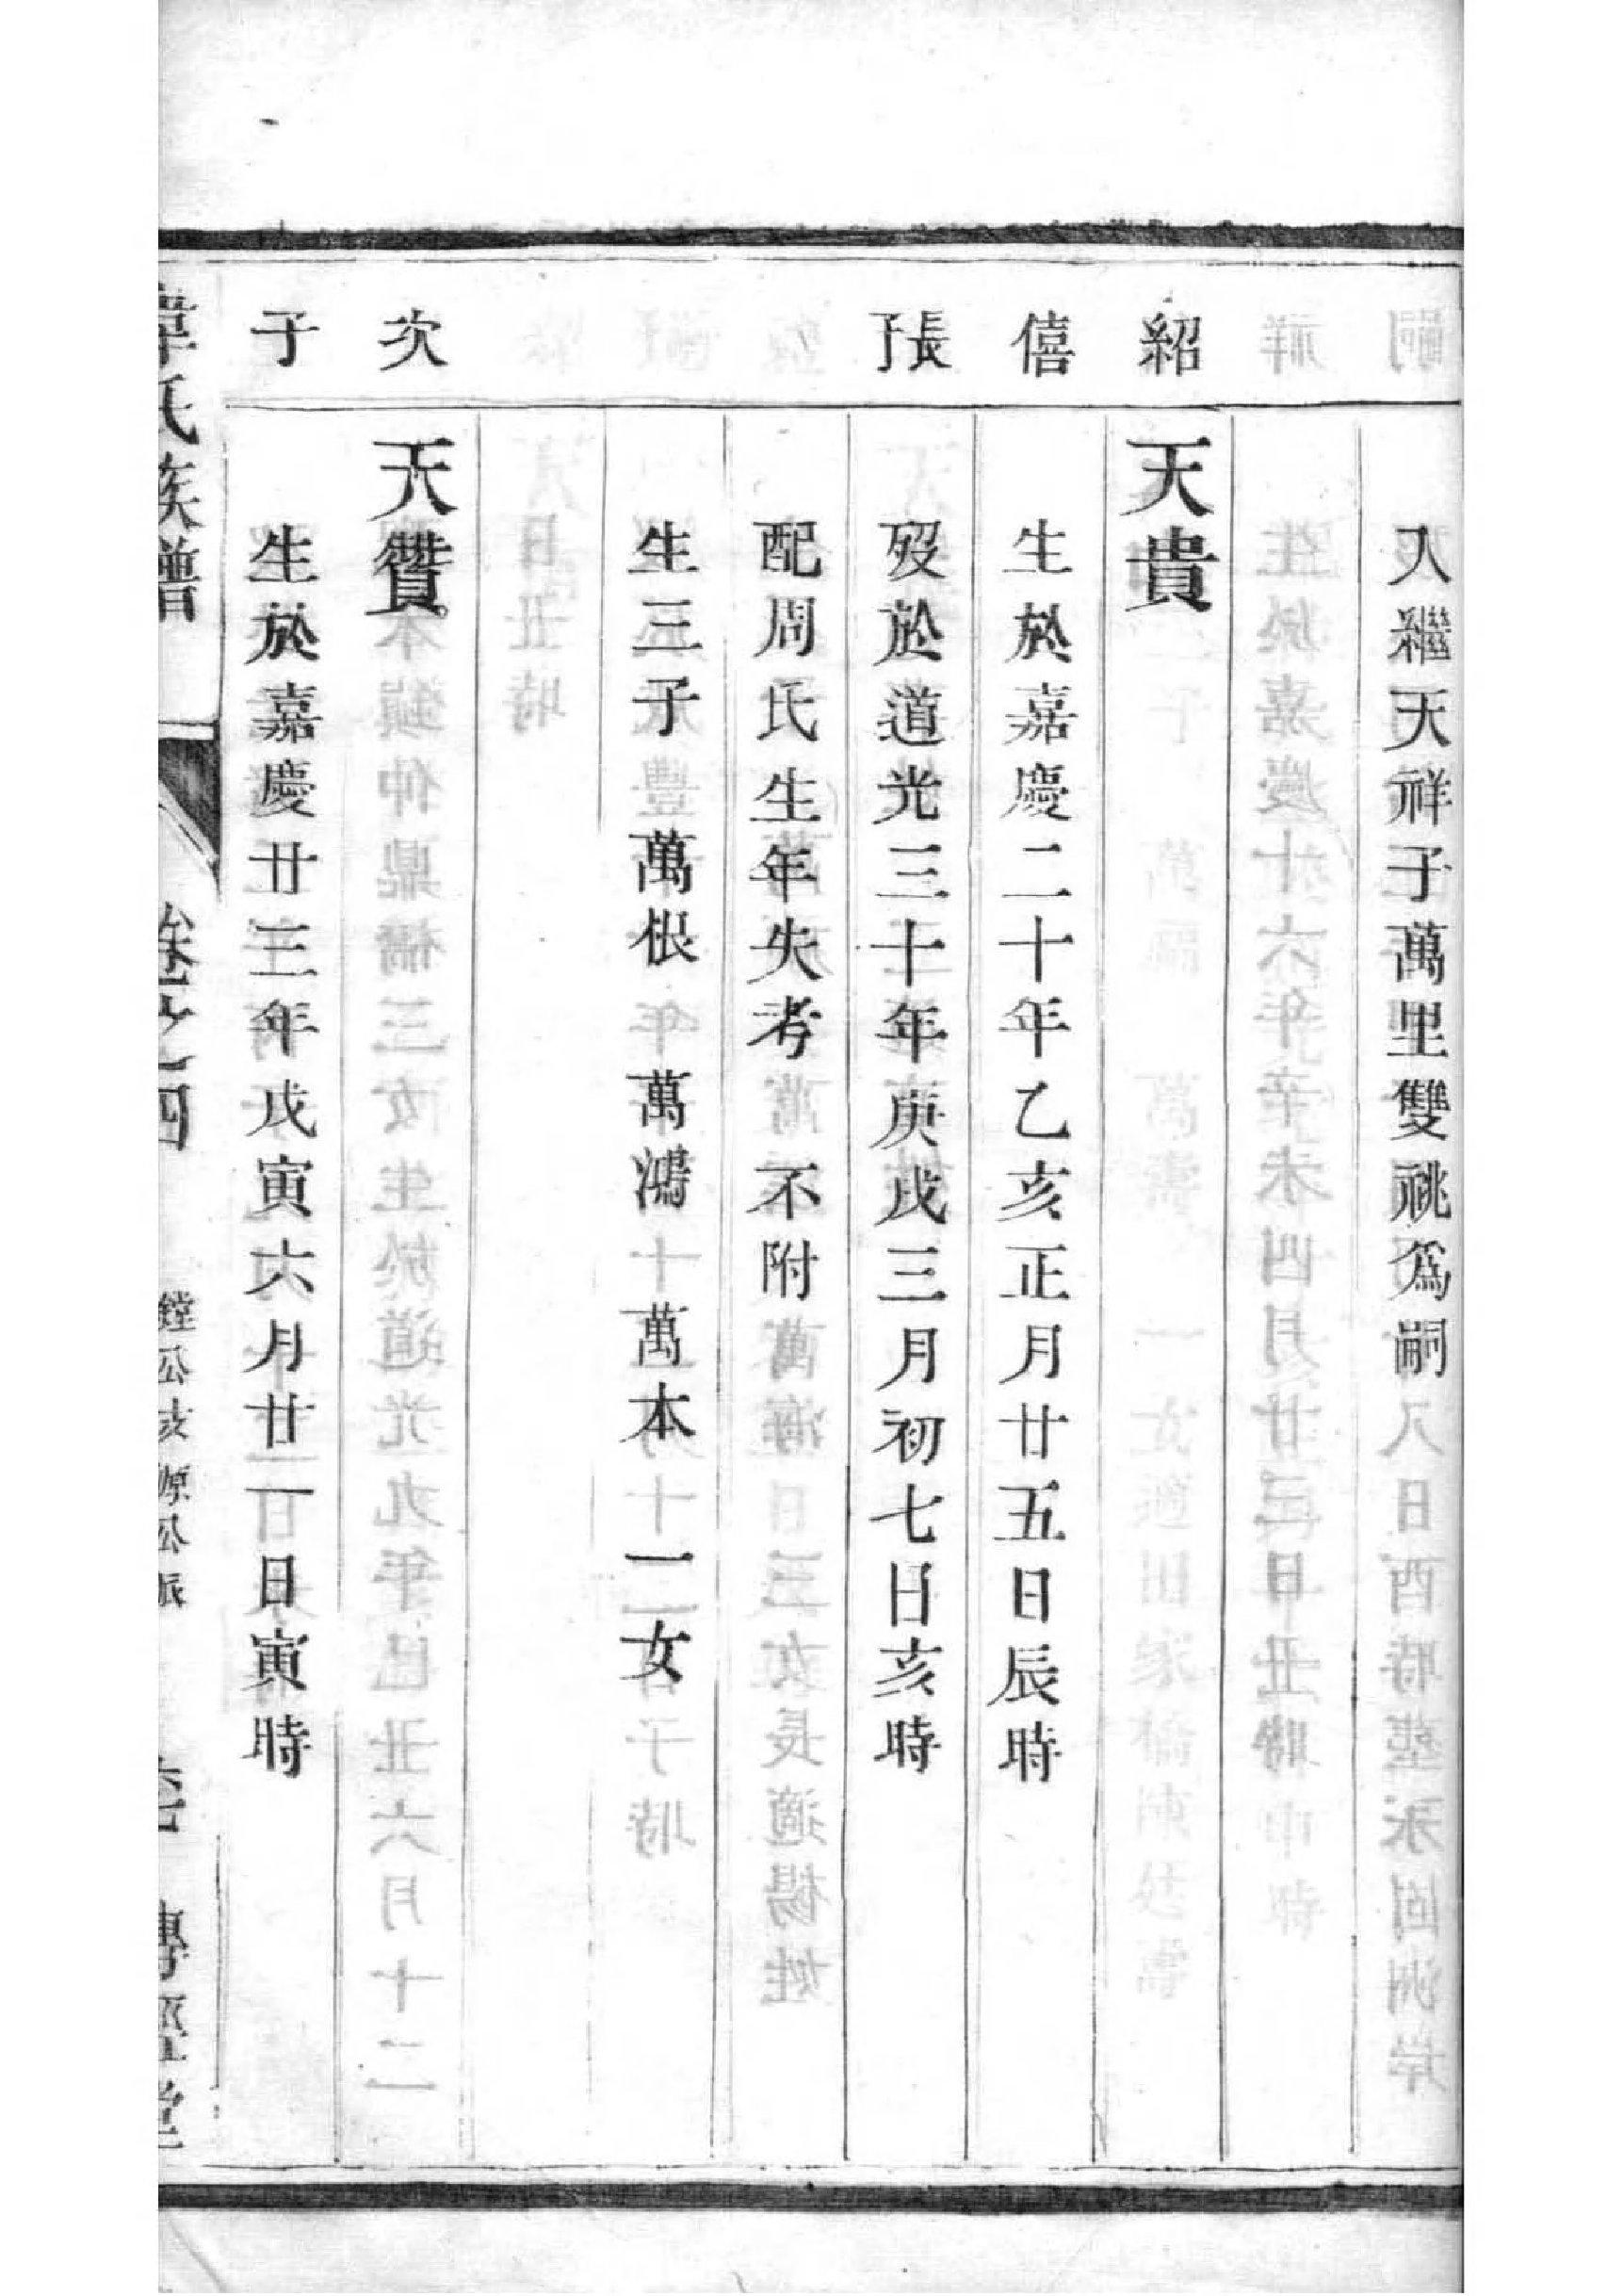 入繼天祥子萬里雙祧爲嗣
紹
天貴
僖
生於嘉慶二十年乙亥正月廿五日辰時
長子
歿於道光三十年庚戌三月初七日亥時
配周氏生年失考 不附
生三子 萬根 萬鴻 萬本 一女
次
天贊
子
生於嘉慶廿三年戊寅六月廿一日寅時
韋氏族譜 卷之四 鏜公支源公派 傳經堂